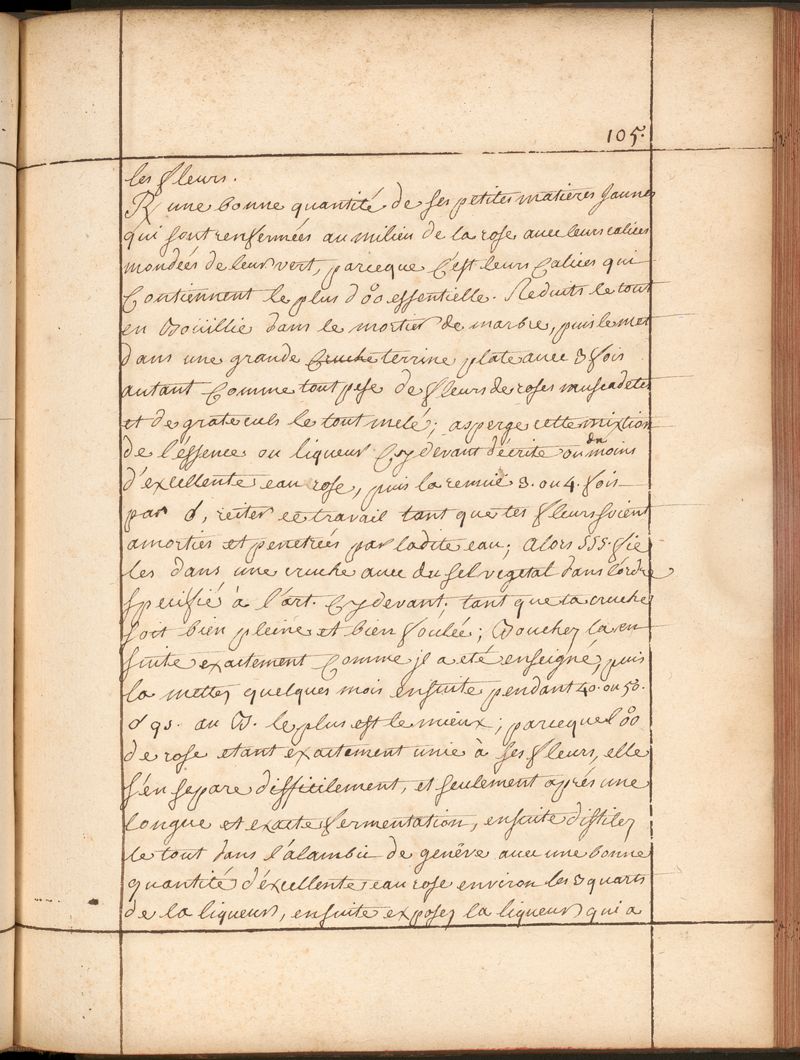 105.
les fleurs.
℞ une bonne quantité de ses petites matieres Jaunes
qui sont renfermées au milieu de la rose avec leurs calices
mondées de leur vert, parceque C'est leurs Calices qui
Contiennent le plus d'o°o essentielle. Reduits le tout
en Boüillie dans le mortier de marbre, puis le met
dans une grande ~~Cruche~~ terrine plate avec 3 fois
autant Comme tout pese de fleurs de roses muscadetes
et de grateculs le tout melé; asperge cette mixtion
de l'éssence ou liqueur Cy devant décrite ou du moins
d'excellente eau rose, puis la remuë 3. ou 4. fois
par d, reiter ce travail tant que les fleurs soient
amorties et penetrées par ladite eau; Alors SSS. fie
les dans une cruche avec du sel vegetal dans l'ordre
specifié à l'art. Cy devant. tant que ta cruche
soit bien pleine et bien foulée; Bouchez la en
suite exactement Comme jl a eté enseigné, puis
la mettez quelques mois ensuite pendant 40. ou 50.
d qs. au B. le plus est le mieux; parceque l'o°o
de rose etant exactement unie à ses fleurs, elle
s'en separe difficilement, et seulement aprés une
longue et exacte fermentation, ensuite distilez
le tout dans l'alambic de genêve avec une bonne
quantité d'éxcellente eau rose environ les 3 quarts
de la liqueur, ensuite exposez la liqueur qui a